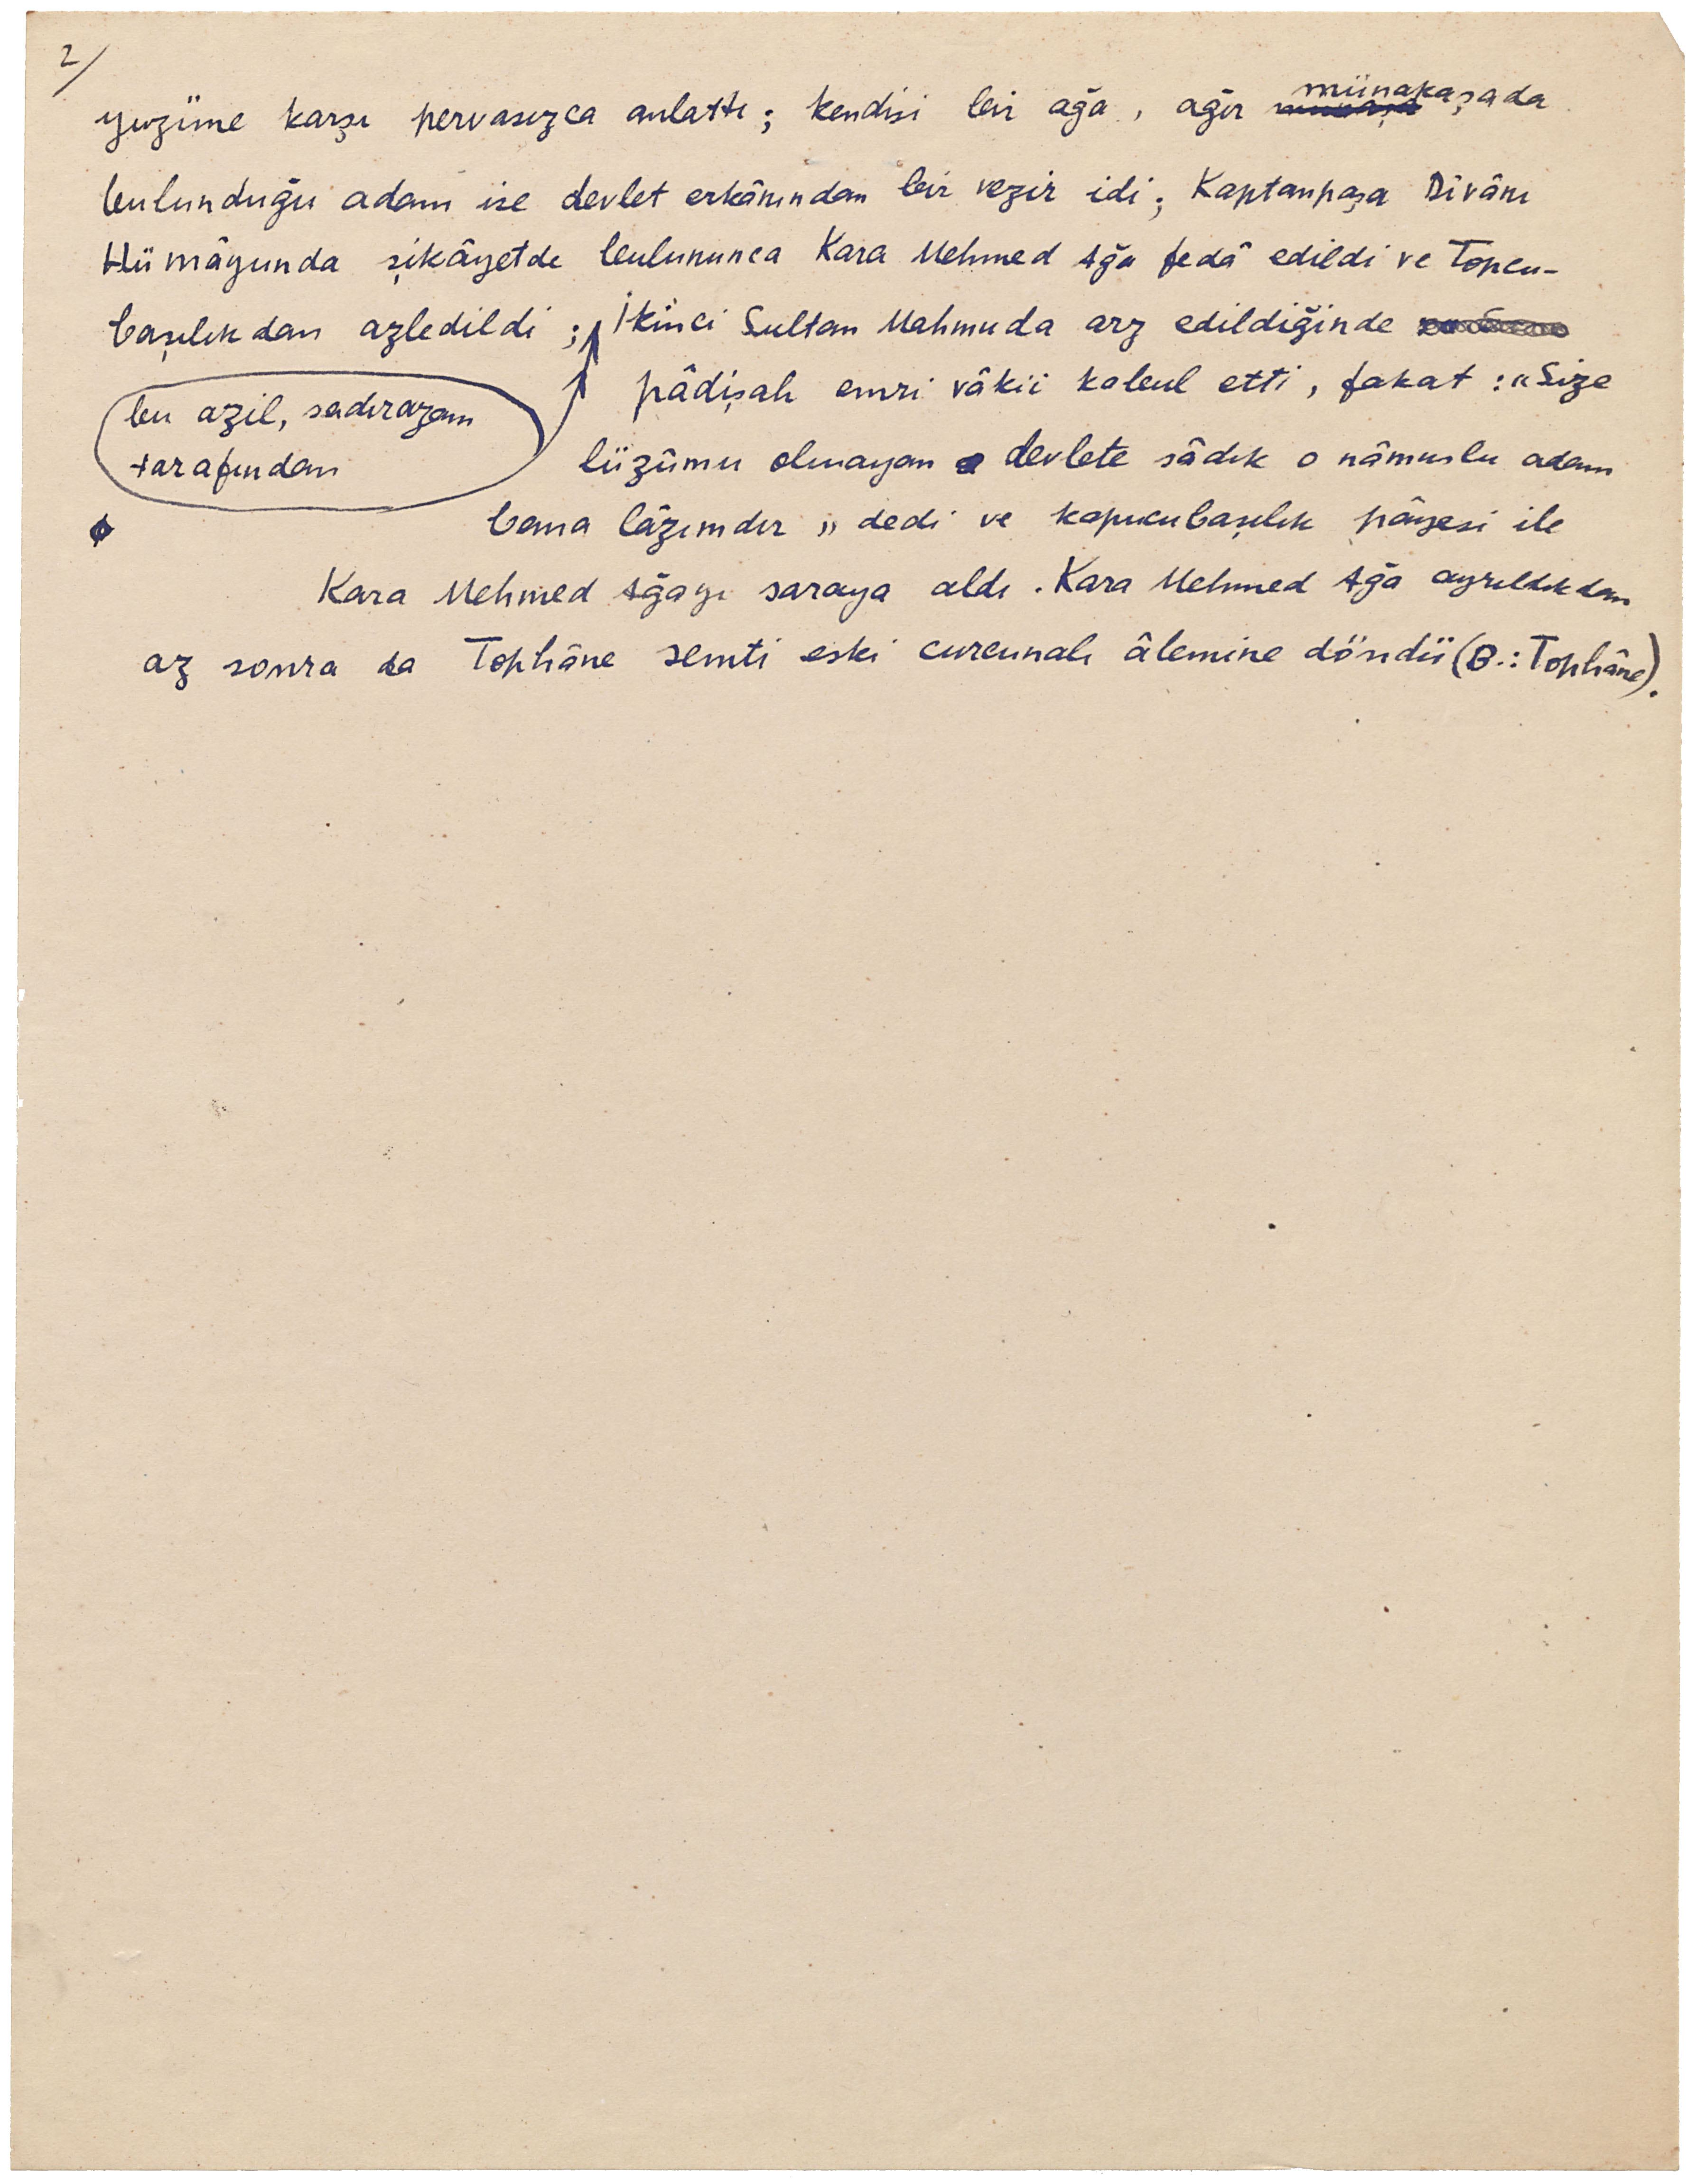 2/
yüzüme karşı pervasızca anlattı; kendisi bir ağa, ağır münakaşada
bulunduğu adam ise devlet erkânından bir vezir idi; Kaptanpaşa Dîvânı
Hümâyunda şikâyetde bulununca Kara Mehmed Ağa fedâ edildi ve Topcu-
başılıkdan azledildi; İkinci Sultan Mahmuda arz edildiğinde
bu azil, sadırazam
tarafından
pâdişah emri vâkii kabul etti, fakat: "Size
lüzûmu olmayan devlete sâdık o nâmuslu adam
bana lâzımdır" dedi ve kapucubaşılık pâyesi ile
Kara Mehmed Ağayı saraya aldı. Kara Mehmed Ağa ayrıldıkdan
az sonra da Tophâne semti eski curcunalı âlemine döndü (B.: Tophâne).